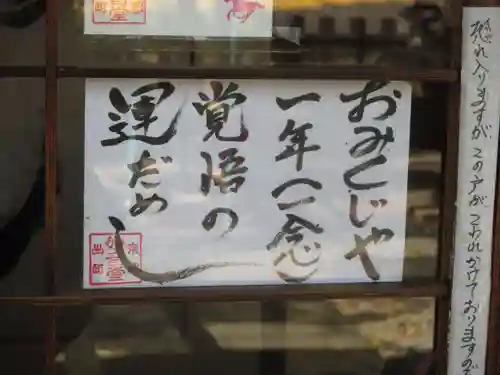 恐れ入りますが この戸が こわれかけておりますの
おみくじや
一年(一念)
覚悟の
運だめし
妙音堂
出町